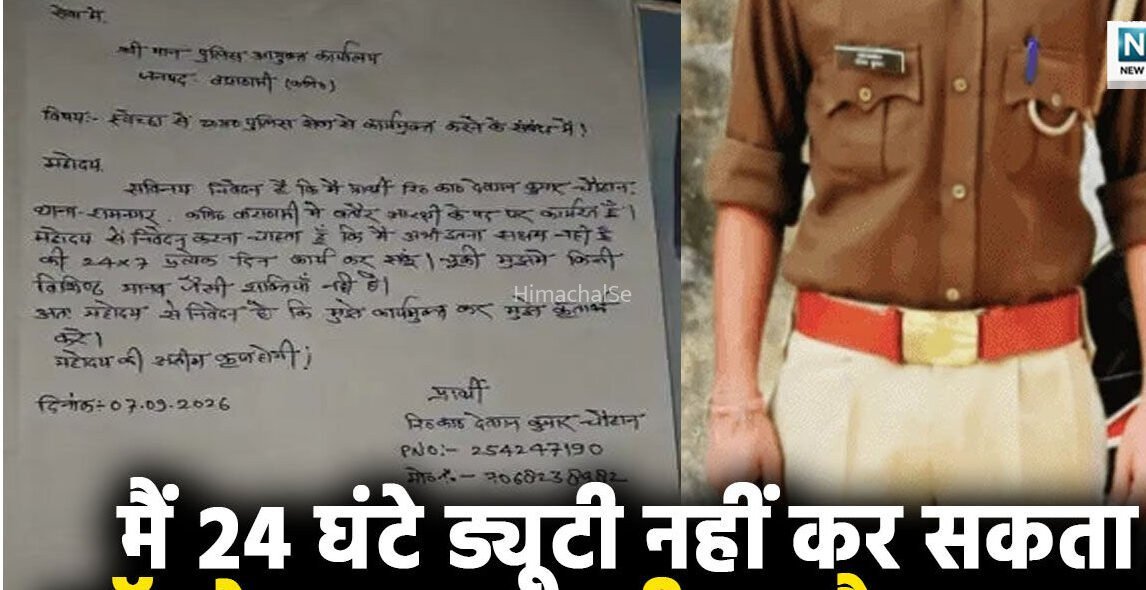 सेवा में,
श्री मान पुलिस आयुक्त कार्यालय
जनपद- वाराणसी (कमि०)
विषयः- स्वेच्छा से पुलिस सेवा से कार्यमुक्त करने के संबंध में!
महोदय,
सविनय निवेदन है कि मैं प्रार्थी रि० का० कुमार चौहान
थाना- रामनगर, कमि० वाराणसी में बतौर आरक्षी के पद पर कार्यरत है।
महोदय से निवेदन करना चाहता है कि मैं अभी इतना सक्षम नही है
की 24x7 प्रत्येक दिन कार्य कर सकूं। चूकी मुझमे किसी
विशिष्ट मानव जैसी शक्तियाँ नही है।
अतः महोदय से निवेदन है कि मुझे कार्यमुक्त कर मुझे कृतार्थ
करे।
महोदय की असीम कृपा होगी;
दिनांकः- 07.09.2026
प्रार्थी
रि० का० कुमार चौहान
PNO:- 254247190
मो० नं०-
HimachalSe
N
NEW
मैं 24 घंटे ड्यूटी नहीं कर सकता